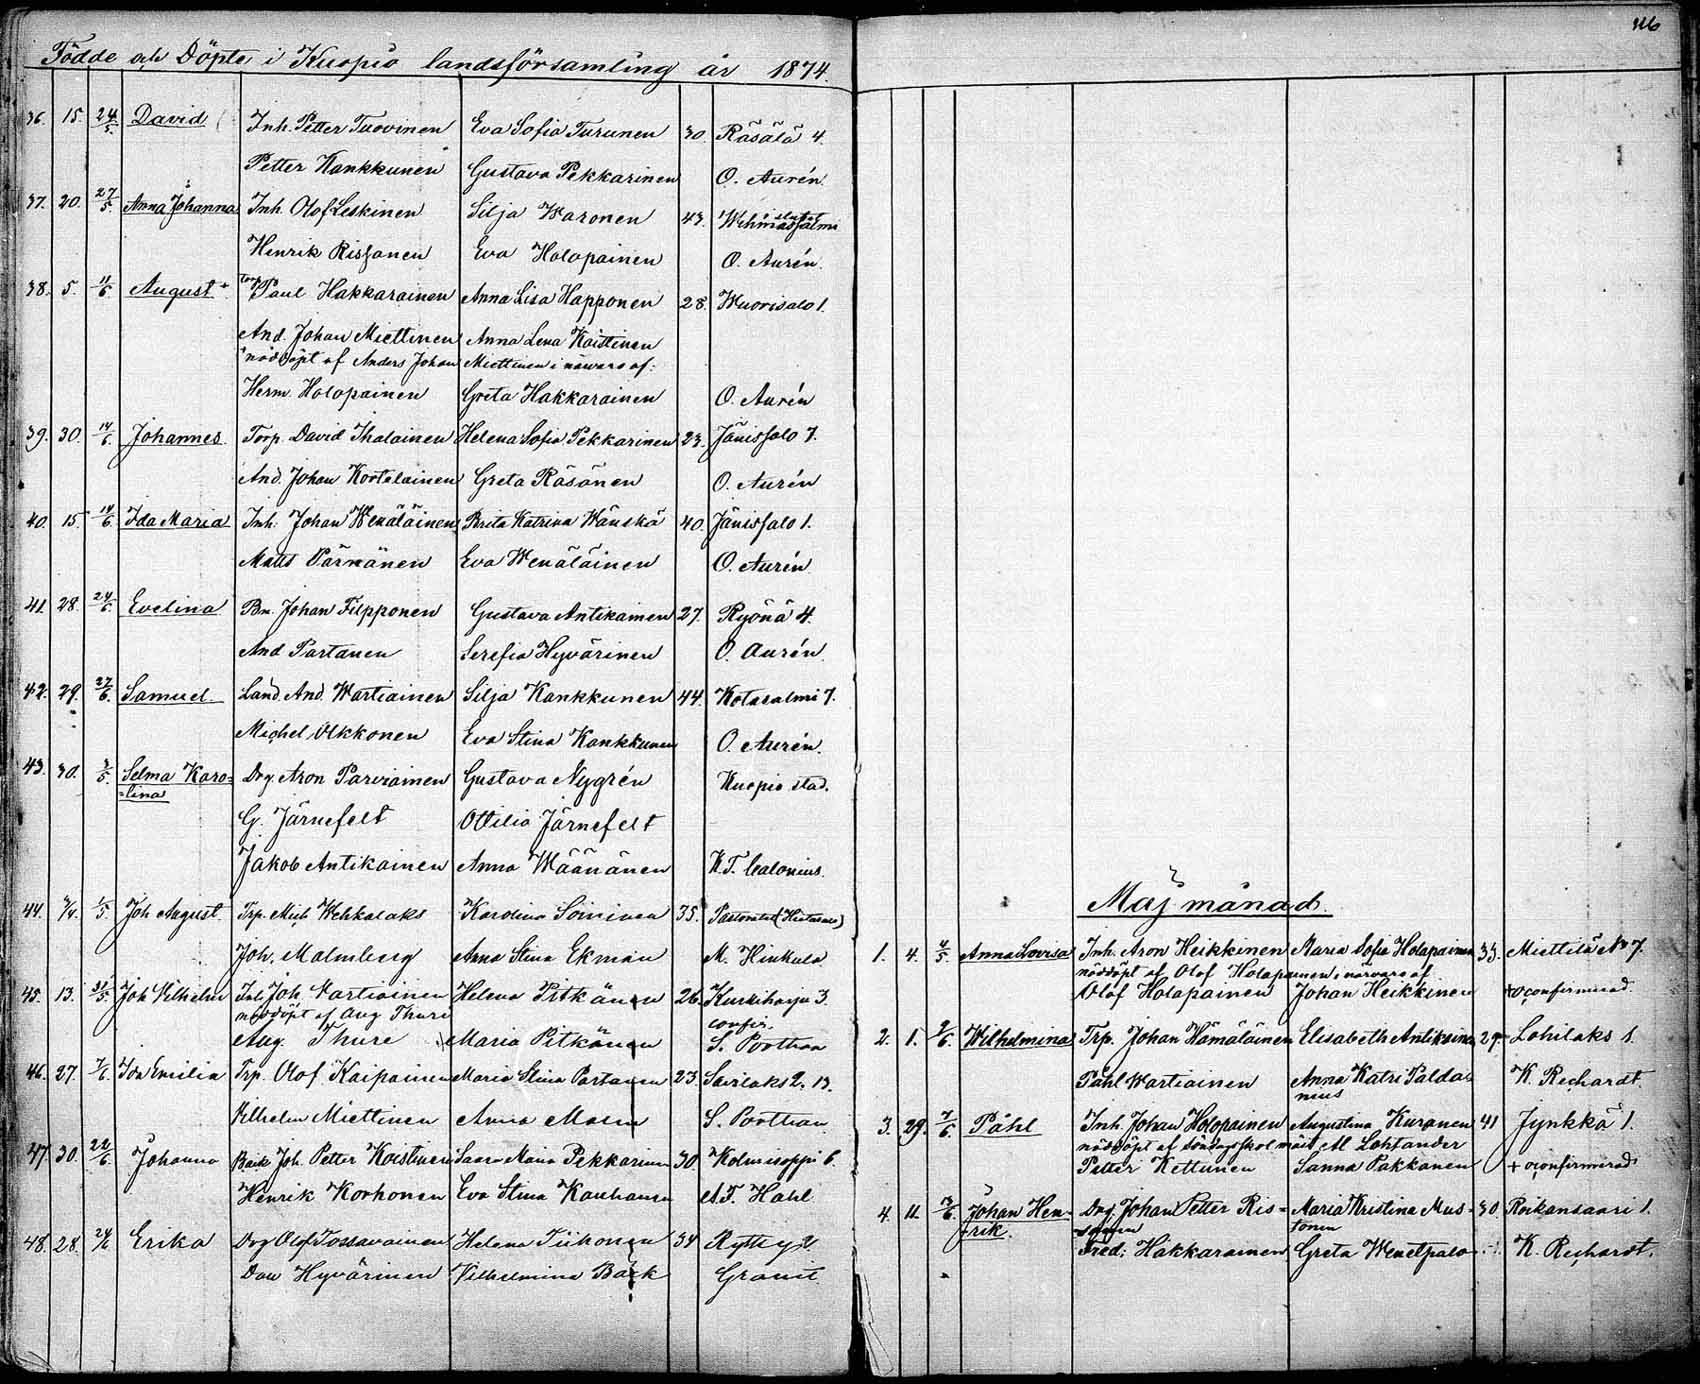 Födde och Döpte i Kuopio landsförsamling år 1874.
36. 15. 24/5. David Inh. Petter Tuovinen Eva Sofia Turunen 30. Räsälä 4.
Petter Kankkunen Gustava Pekkarinen O. Aurén.
37. 20. 27/5. Anna Johanna Inh. Olof Leskinen Silja Waronen 43. Wehmassalmi
Henrik Rissanen Eva Holopainen O. Aurén.
38. 5. 11/6. August + Torp. Paul Hakkarainen Anna Lisa Happonen 28. Wuorisalo 1.
And. Johan Miettinen Anna Lena Koistinen
+ nöddöpt af Anders Johan Miettinen i närvaro af:
Herm. Holopainen Greta Hakkarainen O. Aurén
39. 30. 14/6. Johannes. Torp. David Ihalainen Helena Sofia Pekkarinen 23. Jänissalo 7.
And. Johan Kortelainen Greta Räsänen O. Aurén
40. 15. 14/6. Ida Maria Inh. Johan Wenäläinen Brita Katrina Wänskä 40. Jänissalo 1.
Matts Pärnänen Eva Wenäläinen O. Aurén.
41. 28. 24/6. Evelina Bn. Johan Filpponen Gustava Antikainen 27. Ryönä 4.
And Partanen Serefia Hyvärinen O. Aurén.
42. 29. 27/6. Samuel Land. And. Wartiainen Silja Kankkunen 44. Kotasalmi 7.
Michel Ulkkonen Eva Stina Kankkunen O. Aurén.
43. 30. 3/5. Selma Karo= Drg. Aron Parviainen Gustava Nygrén Kuopio stad.
=lina
G. Järnefelt Ottilia Järnefelt
Jakob Antikainen Anna Wäänänen K.T. Calonius.
44. 5. Joh August. Trp. Mich Wehkalaks Karolina Soininen 35. Pastoratet
Joh. Malmberg Anna Stina Ekman M. Hinkula
45. 13. 31/5. Joh Vilhelm Inh. Joh. Vartiainen Helena Pitkänen 26. Kurkiharju 3.
nöddöpt af Aug Thure confir.
Aug. Thure Maria Pitkänen S. Porthan
46. 27. 7/6. Ida Emilia Trp. Olof Kaipainen Maria Stina Partanen 23. Savilaks 2. 13.
Vilhelm Miettinen Anna S. Porthan
47. 30. 22/6. Johanna Joh. Petter Koistinen Saara Maria Pekkarinen 30. Kolmisoppi 6.
Henrik Korhonen Eva Stina Kauhanen A.F. Hahl
48. 28. 24/6 Erika Drg Olof Tossavainen Helena Tiihonen 34 Rytky 2.
Dan Hyvärinen Vilhelmina Back Granit.
Maj månad.
1. 4. 4/5. Anna Lovisa Inh. Aron Heikkinen Maria Sofia Holopainen 33. Miettilä No 7.
nöddöpt af Olof Holopainen i närvaro af
Olof Holapainen Johan Heikkinen + oconfirmerad.
2. 1. 7/6. Wilhelmina Trp. Johan Hämäläinen Elisabeth Antikainen 29. Lohilaks 1.
Påhl Wartiainen Anna Katri Palda= K. Rechardt.
nius
3. 29. 7/6. Påhl Inh. Johan Holopainen Augustina Kuronen 41 Jynkkä 1.
nöddöpt af söndagsskol mäst. Al Lohtander
Petter Kettunen Sanna Pakkanen + oconfirmerad
4. 11. 13/6. Johan Hen= Drg. Johan Petter Ris= Maria Kristina Mus= 30. Roikansaari 1.
rik. sanen tonen
Fred: Hakkarainen Greta Wenetpalo K. Rechardt.